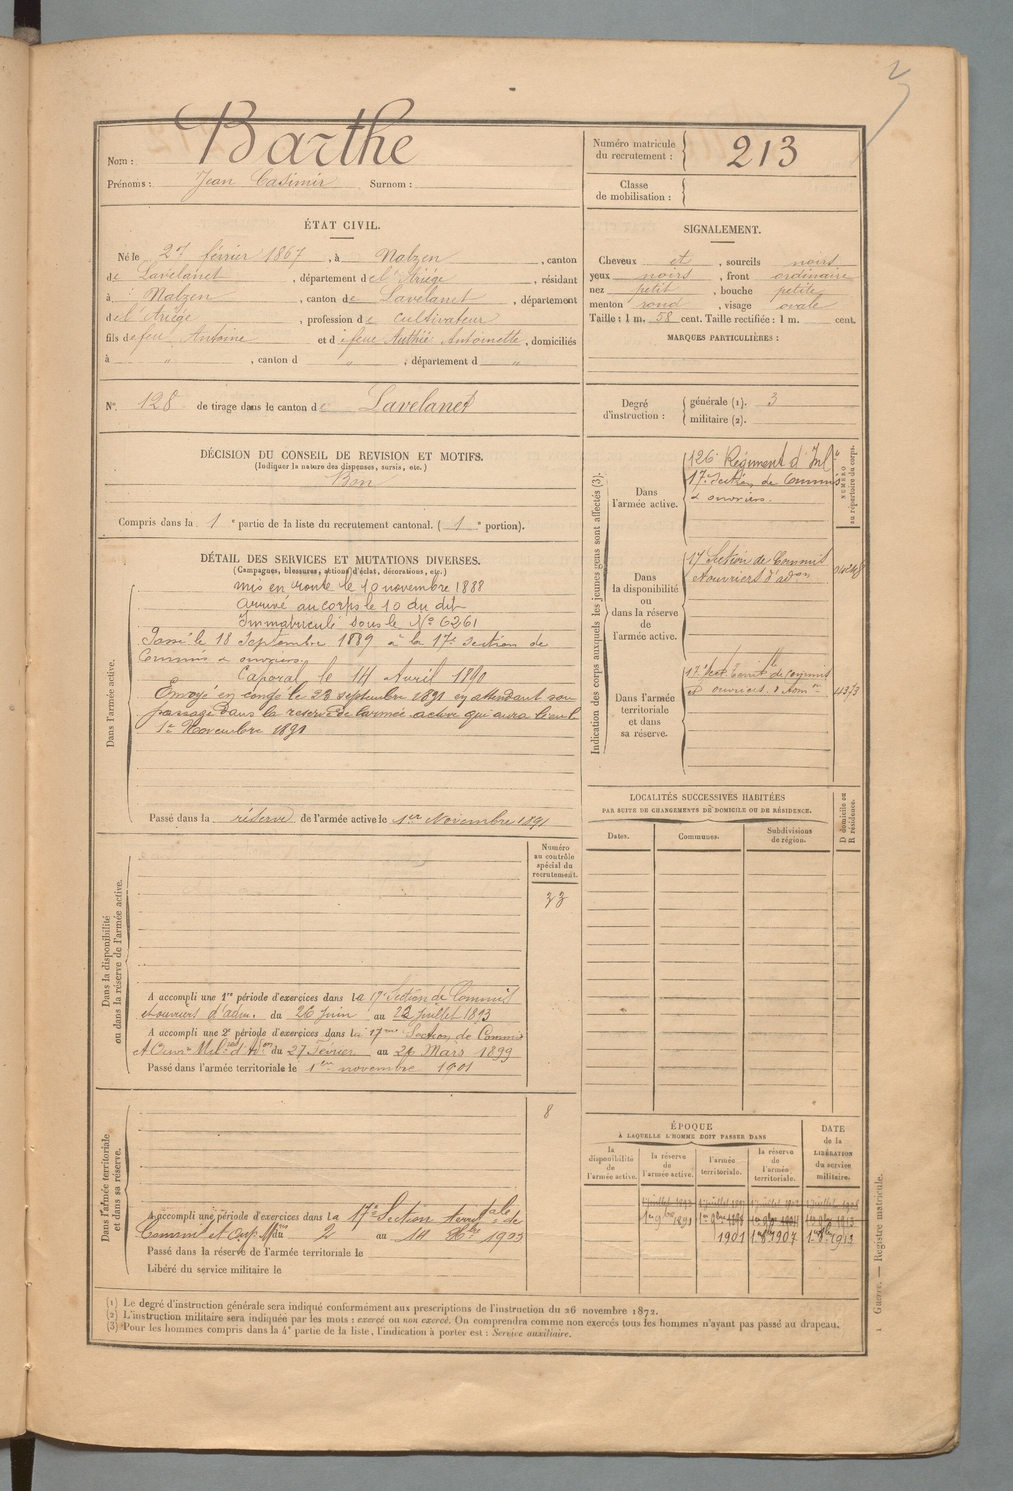 2
Nom : Barthe
Prénoms : Jean Casimir Surnom :
Numéro matricule du recrutement : 213
Classe de mobilisation :
ÉTAT CIVIL.
Né le 27 février 1867, à Nalzen, canton
de Lavelanet, département de l'Ariége, résidant
à Nalzen, canton de Lavelanet, département
de l'Ariége, profession de cultivateur
fils de feu Antoine et de feue Authié Antoinette, domiciliés
à " , canton d " , département d "
N° 128 de tirage dans le canton de Lavelanet
SIGNALEMENT.
Cheveux et , sourcils noirs
yeux noirs , front ordinaire
nez petit , bouche petite
menton rond , visage ovale
Taille : 1 m. 58 cent. Taille rectifiée : 1 m. cent.
MARQUES PARTICULIÈRES :
Degré d'instruction : générale (1). 3
militaire (2).
DÉCISION DU CONSEIL DE REVISION ET MOTIFS.
(Indiquer la nature des dispenses, sursis, etc.)
Bon
Compris dans la 1e partie de la liste du recrutement cantonal. ( 1e portion).
DÉTAIL DES SERVICES ET MUTATIONS DIVERSES.
(Campagnes, blessures, actions d'éclat, décorations, etc.)
Dans l'armée active.
Mis en route le 10 novembre 1888
Arrivé au corps le 10 du dit
Immatriculé sous le N° 6261
Passé le 18 Septembre 1889 à la 17e Section de
Commis & ouvriers.
Caporal le 14 Avril 1890
Envoyé en congé le 23 septembre 1891 en attendant son
passage dans la réserve de l'armée active qui aura lieu le
1er Novembre 1891
Passé dans la réserve de l'armée active le 1er Novembre 1891
Indication des corps auxquels les jeunes gens sont affectés (3).
NUMÉRO au répertoire du corps.
Dans l'armée active.
126e Régiment d'Infie
17e Section de Commis
& ouvriers.
Dans la disponibilité ou dans la réserve de l'armée active.
17e Section de Commis
et ouvriers d'adon
Dans l'armée territoriale et dans sa réserve.
LOCALITÉS SUCCESSIVES HABITÉES
PAR SUITE DE CHANGEMENTS DE DOMICILE OU DE RÉSIDENCE.
Dates. Communes. Subdivisions de région.
D domicile ou R résidence.
Dans la disponibilité ou dans la réserve de l'armée active.
Numéro au contrôle spécial du recrutement.
33
A accompli une 1re période d'exercices dans la 17e Section de Commis
et ouvriers d'adm. du 26 juin au 22 juillet 1893
A accompli une 2e période d'exercices dans la 17me Section de Commis
du 27 Février au 26 Mars 1899
Passé dans l'armée territoriale le 1er novembre 1901
Dans l'armée territoriale et dans sa réserve.
8
A accompli une période d'exercices dans la 17e Section terrtale de
au 14 1903
Passé dans la réserve de l'armée territoriale le
Libéré du service militaire le
ÉPOQUE
À LAQUELLE L'HOMME DOIT PASSER DANS
la disponibilité de l'armée active.
la réserve de l'armée active.
l'armée territoriale.
la réserve de l'armée territoriale.
DATE de la LIBÉRATION du service militaire.
1er 9bre 1891
1901
(1) Le degré d'instruction générale sera indiqué conformément aux prescriptions de l'instruction du 26 novembre 1872.
(2) L'instruction militaire sera indiquée par les mots : exercé ou non exercé. On comprendra comme non exercés tous les hommes n'ayant pas passé au drapeau.
(3) Pour les hommes compris dans la 4e partie de la liste, l'indication à porter est : Service auxiliaire.
1 Guerre. — Registre matricule.